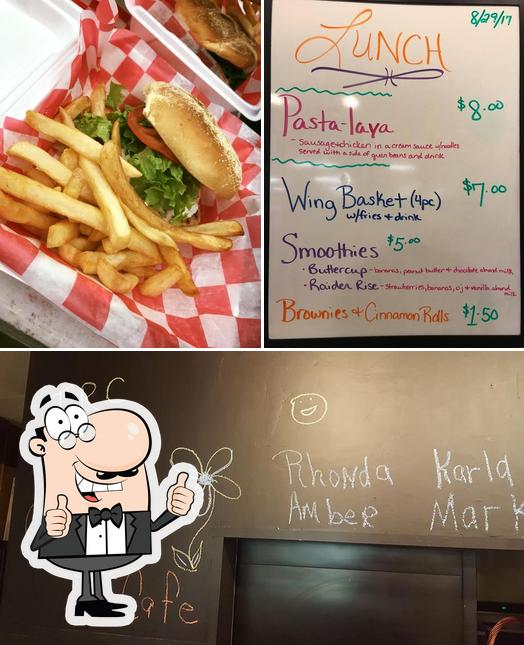 8/29/17
LUNCH
Pasta-laya $8.00
- Sausage+chicken in a cream sauce w/noodles
served with a side of green beans and drink
Wing Basket (4pc) $7.00
w/fries + drink
Smoothies $5.00
• Buttercup - bananas, peanut butter + chocolate almond milk
• Raider Rise - strawberries, bananas, oj + vanilla almond
milk
Brownies + Cinnamon Rolls $1.50
Rhonda Karla
Amber Mark
Cafe